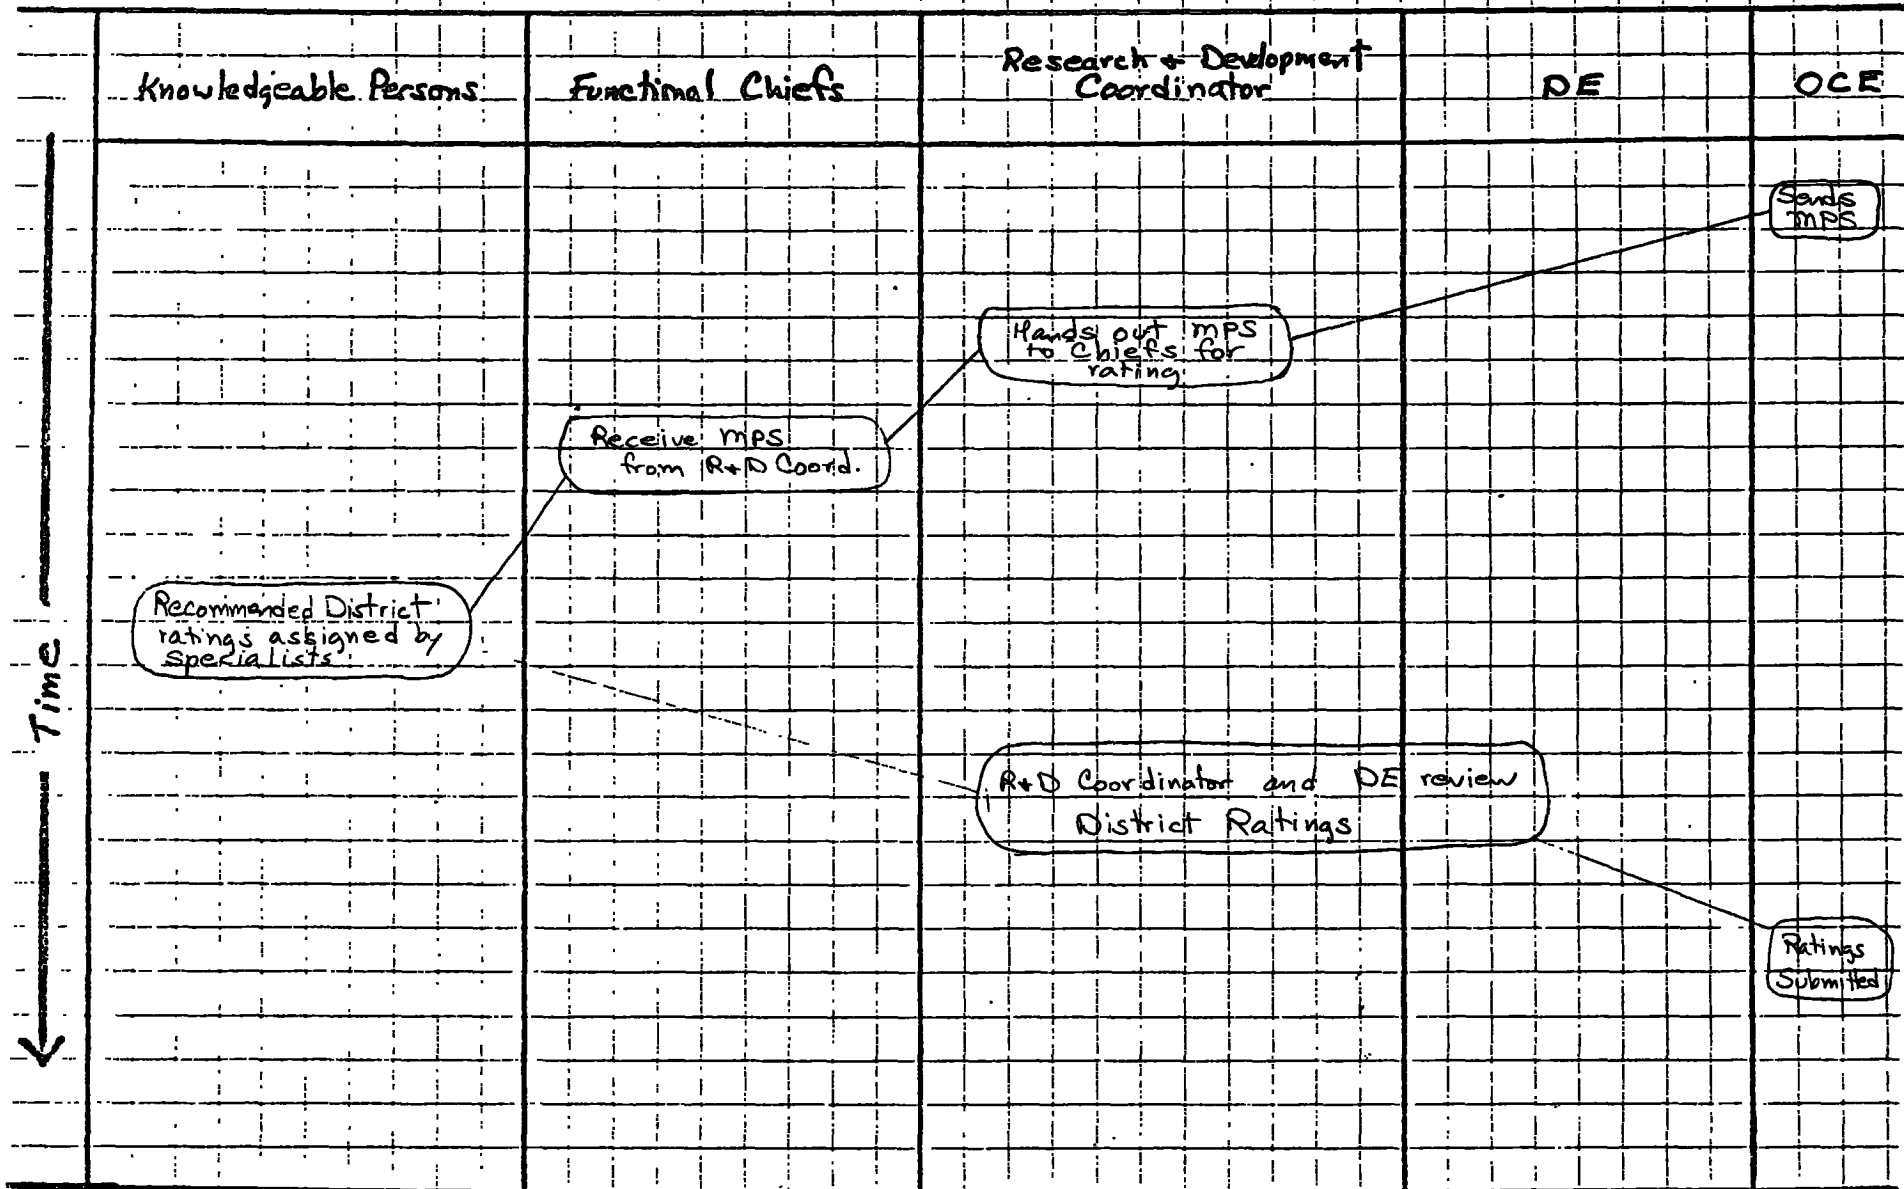 Knowledgeable Persons
Functional Chiefs
Research + Development
Coordinator
DE
OCE
Time
Sends
MPS
Hands out MPS
to Chiefs for
rating
Receive MPS
from R+D Coord.
Recommended District
ratings assigned by
Specialists
R+D Coordinator and DE review
District Ratings
Ratings
Submitted